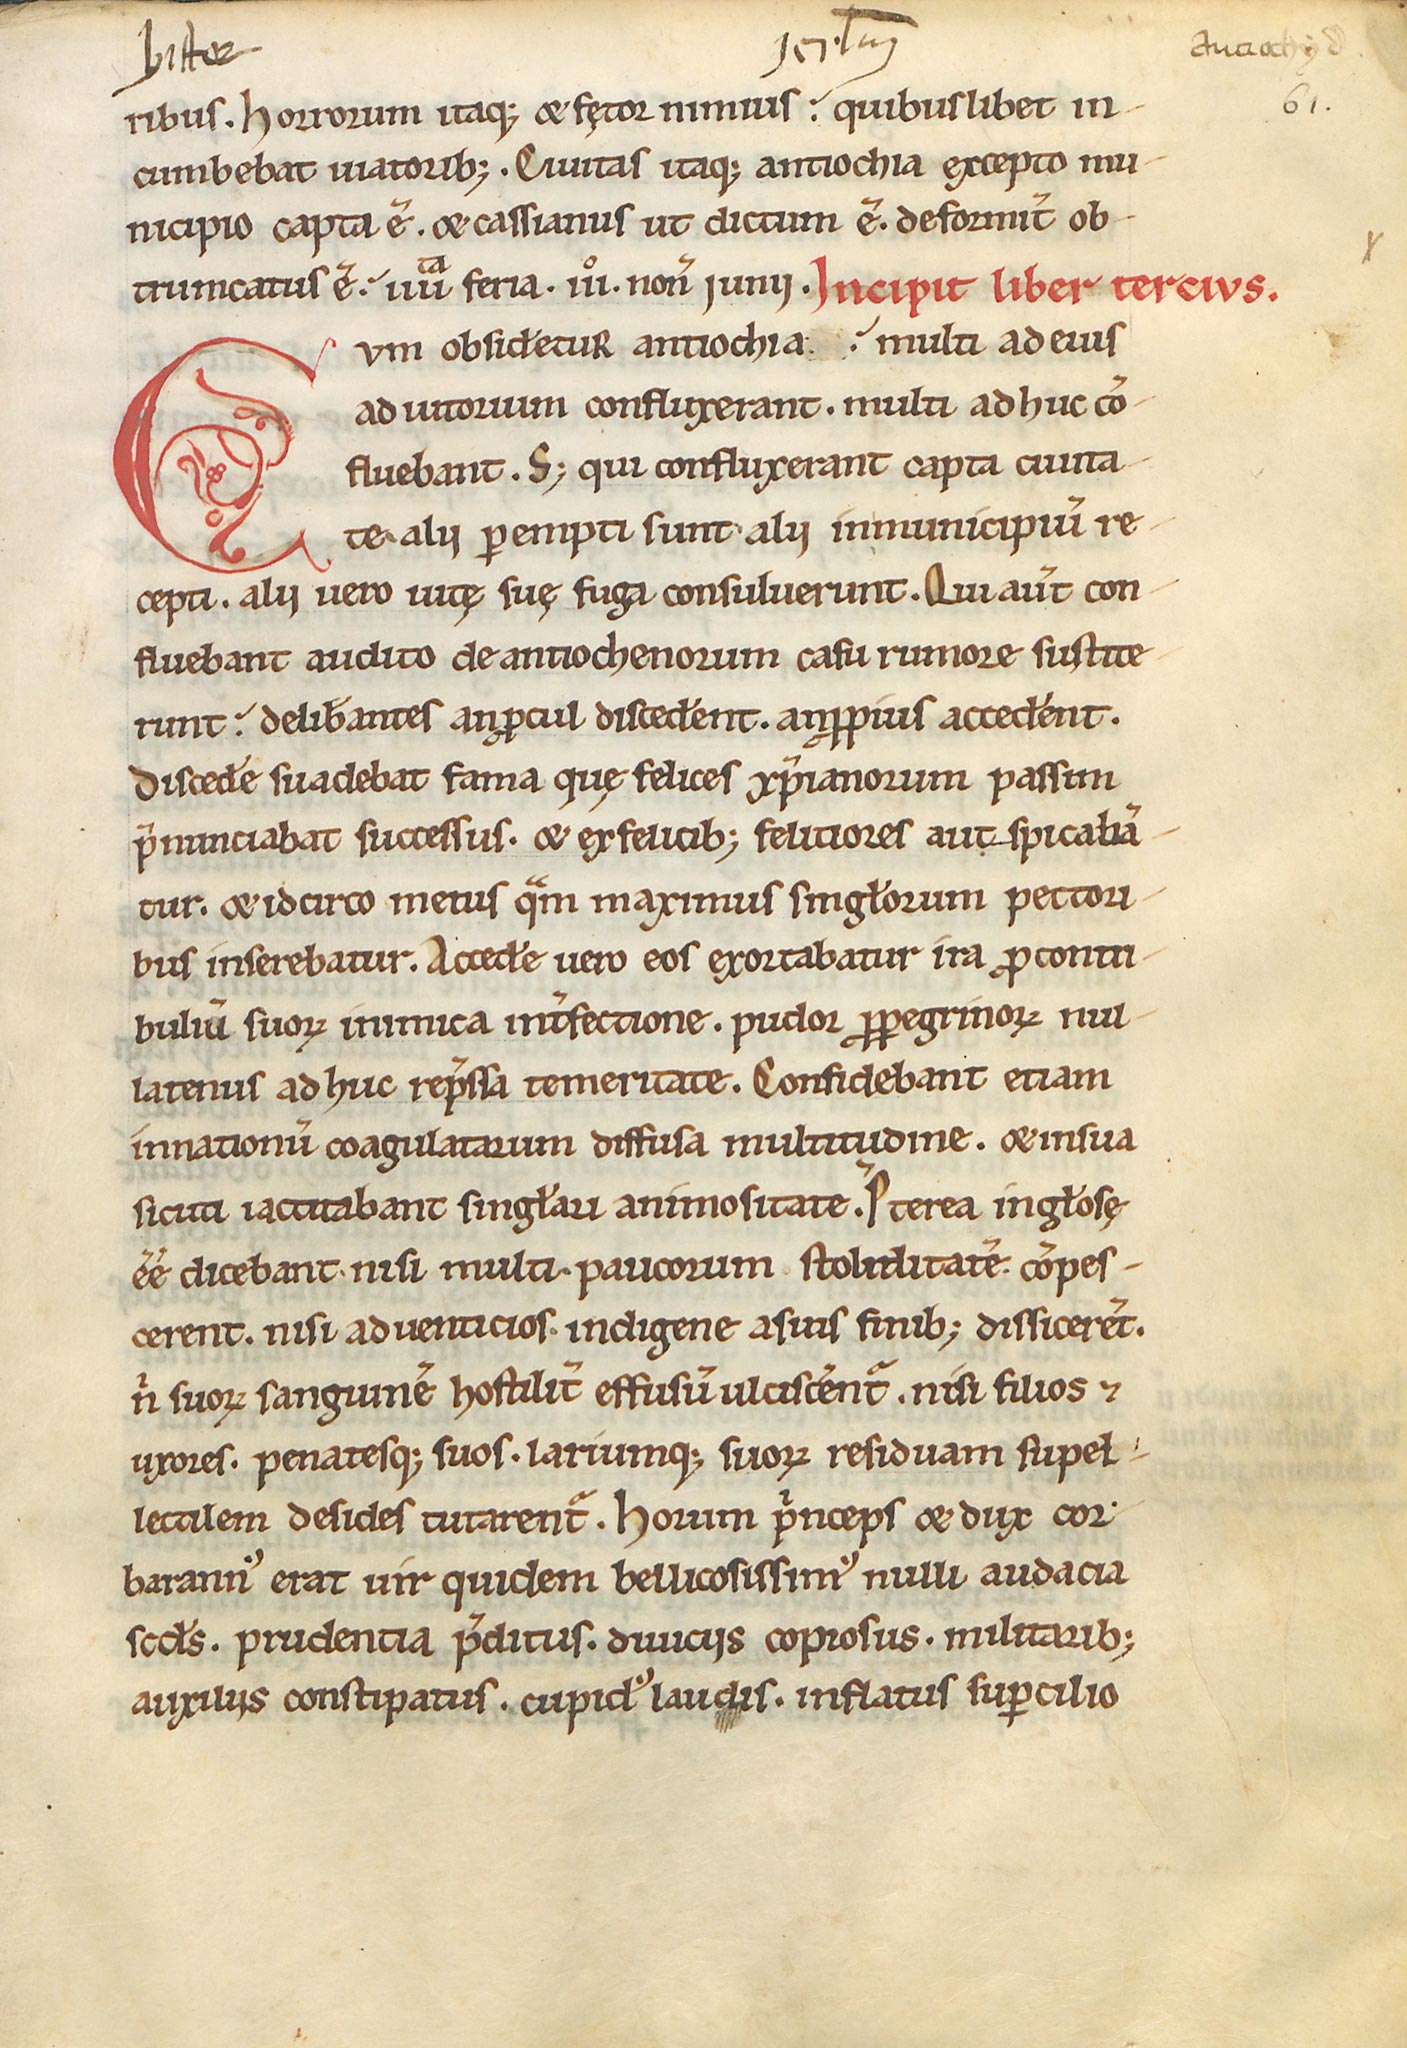 histor
ierlm
Antiochy d
61.
ribus. horrorum itaq; & fętor nimius ? quibuslibet in-
cumbebat uiatorib;. Ciuitas itaq; antiochia excepto mu-
nicipio capta ē. & cassianus ut dictum ē. deformit̄ ob-
truncatus ē. uiita feria. iiio. non̄ junij. Incipit liber tercivs.
Cvm obsid̄etur antiochia ? multi ad eius
adiutorium confluxerant. multi adhuc cō-
fluebant. S; qui confluxerant capta ciuita-
te. alij ꝑempti sunt. alij inmunicipiū re-
cepti. alij uero uitę suę fuga consuluerunt. Qui aūt con-
fluebant audito de antiochenorum casu rumore sustite-
runt ? delib̄antes anꝓcul disced̄ent. anꝓpius acced̄ent.
Disced̄e suadebat fama quę felices xp̄ianorum passim
p̄nunciabat successus. & exfelicib; felitiores aut spicabā-
tur. & idcirco metus qᵃm maximus singłorum pectori-
bus inserebatur. Acced̄e uero eos exortabatur ira ꝓcontri-
buliū suoꝝ inimica int̄fectione. pudor ꝓꝑegrinoꝝ nul-
latenus adhuc rep̄ssa temeritate. Confidebant etiam
innationū coagulatarum diffusa multitudine. & insua
sicuti iactitabant singłari animositate. P̄terea ingłosę
ēē dicebant. nisi multi. paucorum stoliditatē. cōpes-
cerent. nisi aduenticios. indigene asuis finib; dissicerēt.
n̄ suoꝝ sanguinē hostilit̄ effusū ulcisc̄entᵃ. nisi filios ⁊
uxores. penatesq; suos. lariumq; suoꝝ residuam supeł-
lectilem desides tutarentᵃ. Horum p̄nceps & dux cor-
barannꝰ erat uir quidem bellicosissimꝰ nulli audacia
scd̄s. prudentia p̄ditus. diuicijs copiosus. militarib;
auxilijs constipatus. cupidꝰ laudis. inflatus suꝑcilio